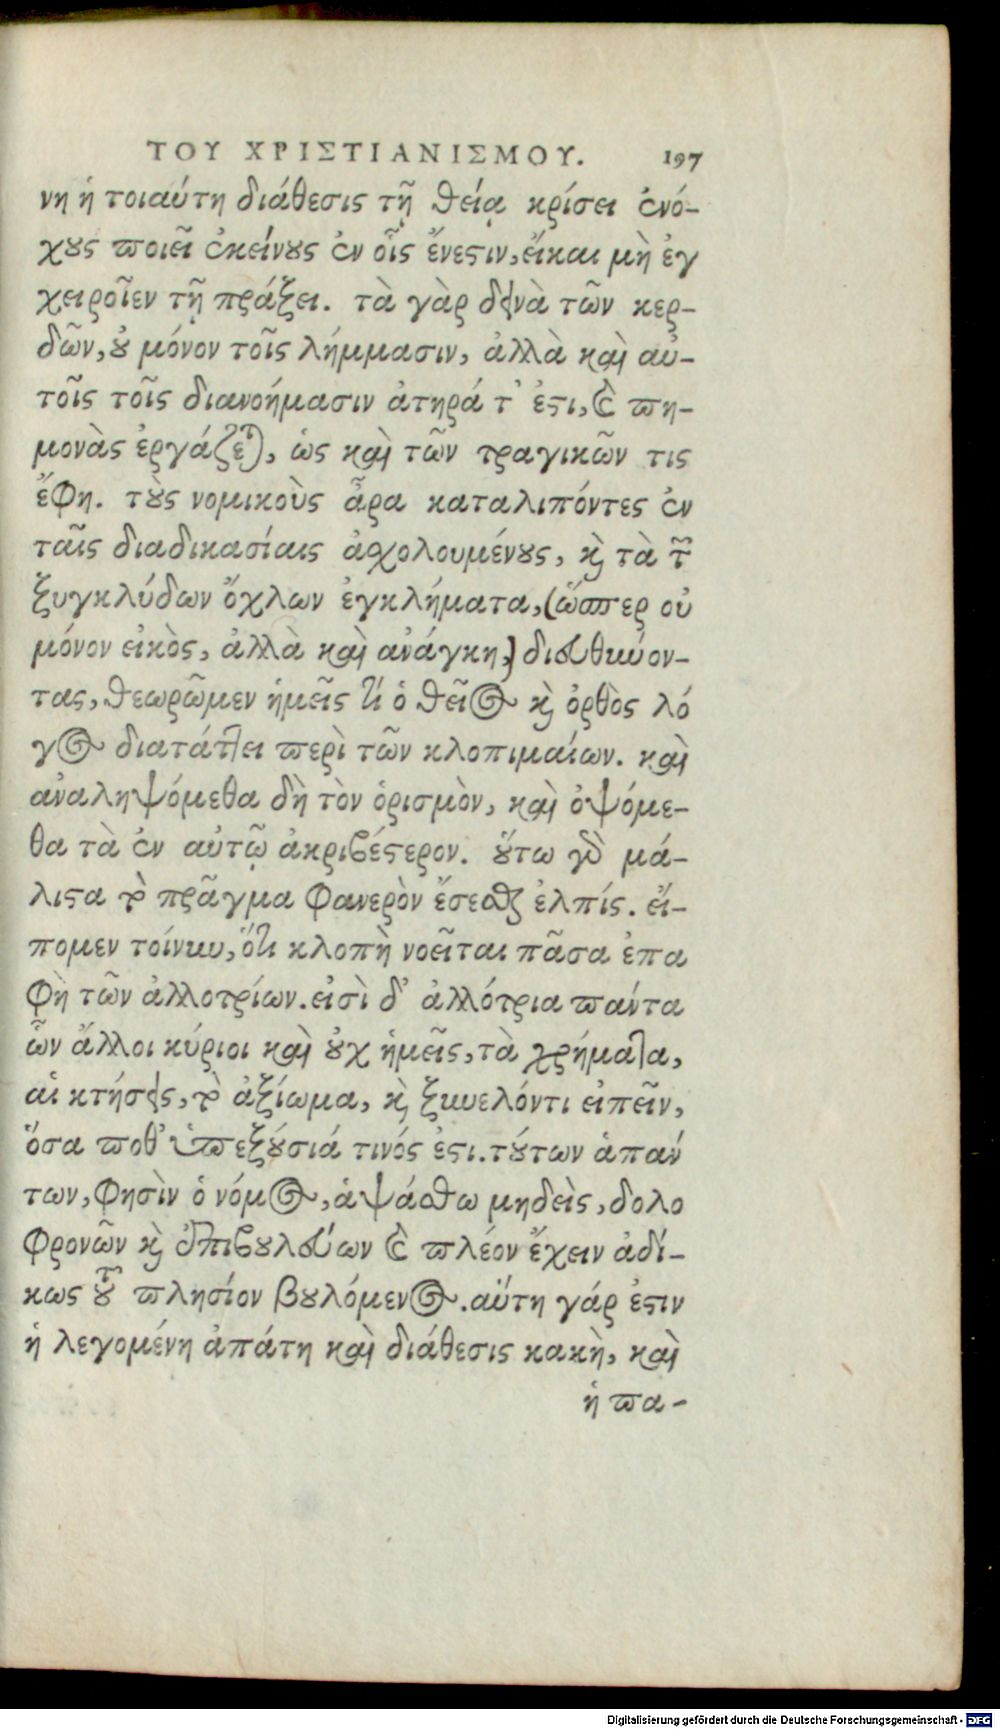 ΤΟΥ ΧΡΙΣΤΙΑΝΙΣΜΟΥ. 197
νη ἡ τοιαύτη διάθεσις τῇ θείᾳ κρίσει ἐνό-
χους ποιεῖ ἐκείνους ἐν οἷς ἔνεστιν, εἴκαι μὴ ἐγ
χειροῖεν τῇ πράξει. τὰ γὰρ δεινὰ τῶν κερ-
δῶν, οὐ μόνον τοῖς λήμμασιν, ἀλλὰ καὶ αὐ-
τοῖς τοῖς διανοήμασιν ἀτηρά τ' ἐστι, καὶ πη-
μονὰς ἐργάζεται, ὡς καὶ τῶν τραγικῶν τις
ἔφη. τοὺς νομικοὺς ἆρα καταλιπόντες ἐν
ταῖς διαδικασίαις ἀσχολουμένους, καὶ τὰ τῶν
ξυγκλύδων ὄχλων ἐγκλήματα, (ὥσπερ οὐ
μόνον εἰκὸς, ἀλλὰ καὶ ἀνάγκη,) διευθύνον-
τας, θεωρῶμεν ἡμεῖς τί ὁ θεῖος καὶ ὀρθὸς λό
γος διατάττει περὶ τῶν κλοπιμαίων. καὶ
ἀναληψόμεθα δὴ τὸν ὁρισμὸν, καὶ ὀψόμε-
θα τὰ ἐν αὐτῷ ἀκριβέστερον. οὕτω γὰρ μά-
λιστα τὸ πρᾶγμα φανερὸν ἔσεσθαι ἐλπίς. εἴ-
πομεν τοίνυν, ὅτι κλοπὴ νοεῖται πᾶσα ἐπα
φὴ τῶν ἀλλοτρίων. εἰσὶ δ' ἀλλότρια πάντα
ὧν ἄλλοι κύριοι καὶ οὐχ ἡμεῖς, τὰ χρήματα,
αἱ κτήσεις, τὸ ἀξίωμα, καὶ ξυνελόντι εἰπεῖν,
ὅσα ποθ' ὑπεξούσιά τινός ἐστι. τούτων ἁπάν
των, φησὶν ὁ νόμος, ἁψάσθω μηδεὶς, δολο
φρονῶν καὶ ἐπιβουλεύων καὶ πλέον ἔχειν ἀδί-
κως τοῦ πλησίον βουλόμενος. αὕτη γάρ ἐστιν
ἡ λεγομένη ἀπάτη καὶ διάθεσις κακὴ, καὶ
ἡ πα-
Digitalisierung gefördert durch die Deutsche Forschungsgemeinschaft - DFG